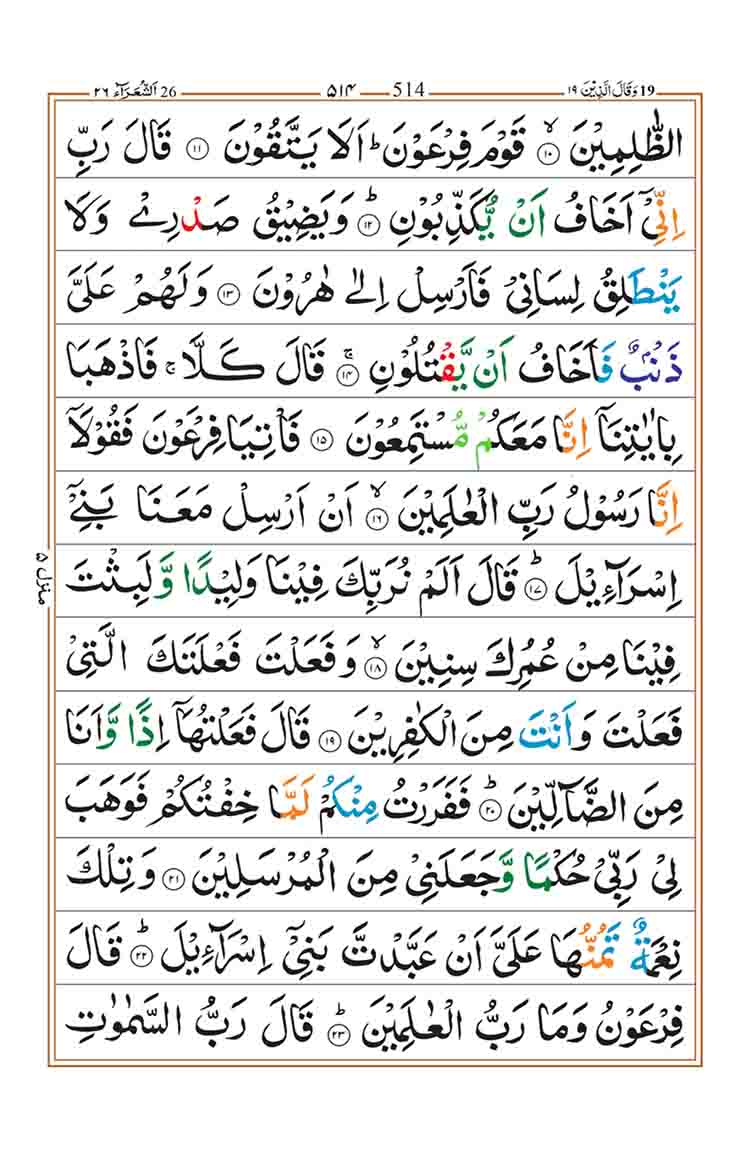 19 وَقَالَ الَّذِيْنَ ١٩ 514 ۵۱۴ 26 اَلشُّعَرَآء ٢٦
الظّٰلِمِيْنَ ۙ‏﴿۱۰﴾ قَوْمَ فِرْعَوْنَ‌ؕ اَلَا يَتَّقُوْنَ ﴿۱۱﴾ قَالَ رَبِّ
اِنِّىْۤ اَخَافُ اَنْ يُّكَذِّبُوْنِؕ ﴿۱۲﴾ وَيَضِيْقُ صَدْرِىْ وَلَا
يَنْطَلِقُ لِسَانِىْ فَاَرْسِلْ اِلٰى هٰرُوْنَ ﴿۱۳﴾ وَلَهُمْ عَلَىَّ
ذَنْۢبٌ فَاَخَافُ اَنْ يَّقْتُلُوْنِ‌ۚ ﴿۱۴﴾ قَالَ كَلَّا‌ ۚ فَاذْهَبَا
بِاٰيٰتِنَآ‌ اِنَّا مَعَكُمْ مُّسْتَمِعُوْنَ ﴿۱۵﴾ فَاْتِيَا فِرْعَوْنَ فَقُوْلَاۤ
اِنَّا رَسُوْلُ رَبِّ الْعٰلَمِيْنَۙ ﴿۱۶﴾ اَنْ اَرْسِلْ مَعَنَا بَنِىْۤ
اِسْرَآءِيْلَؕ ﴿۱۷﴾ قَالَ اَلَمْ نُرَبِّكَ فِيْنَا وَلِيْدًا وَّلَبِثْتَ
فِيْنَا مِنْ عُمُرِكَ سِنِيْنَۙ ﴿۱۸﴾ وَفَعَلْتَ فَعْلَتَكَ الَّتِىْ
فَعَلْتَ وَاَنْتَ مِنَ الْكٰفِرِيْنَ ﴿۱۹﴾ قَالَ فَعَلْتُهَاۤ اِذًا وَّاَنَا
مِنَ الضَّآلِّيْنَؕ ﴿۲۰﴾ فَفَرَرْتُ مِنْكُمْ لَمَّا خِفْتُكُمْ فَوَهَبَ
لِىْ رَبِّىْ حُكْمًا وَّجَعَلَنِىْ مِنَ الْمُرْسَلِيْنَ ﴿۲۱﴾ وَتِلْكَ
نِعْمَةٌ تَمُنُّهَا عَلَىَّ اَنْ عَبَّدْتَّ بَنِىْۤ اِسْرَآءِيْلَؕ ﴿۲۲﴾ قَالَ
فِرْعَوْنُ وَمَا رَبُّ الْعٰلَمِيْنَؕ ﴿۲۳﴾ قَالَ رَبُّ السَّمٰوٰتِ
منزل ۵